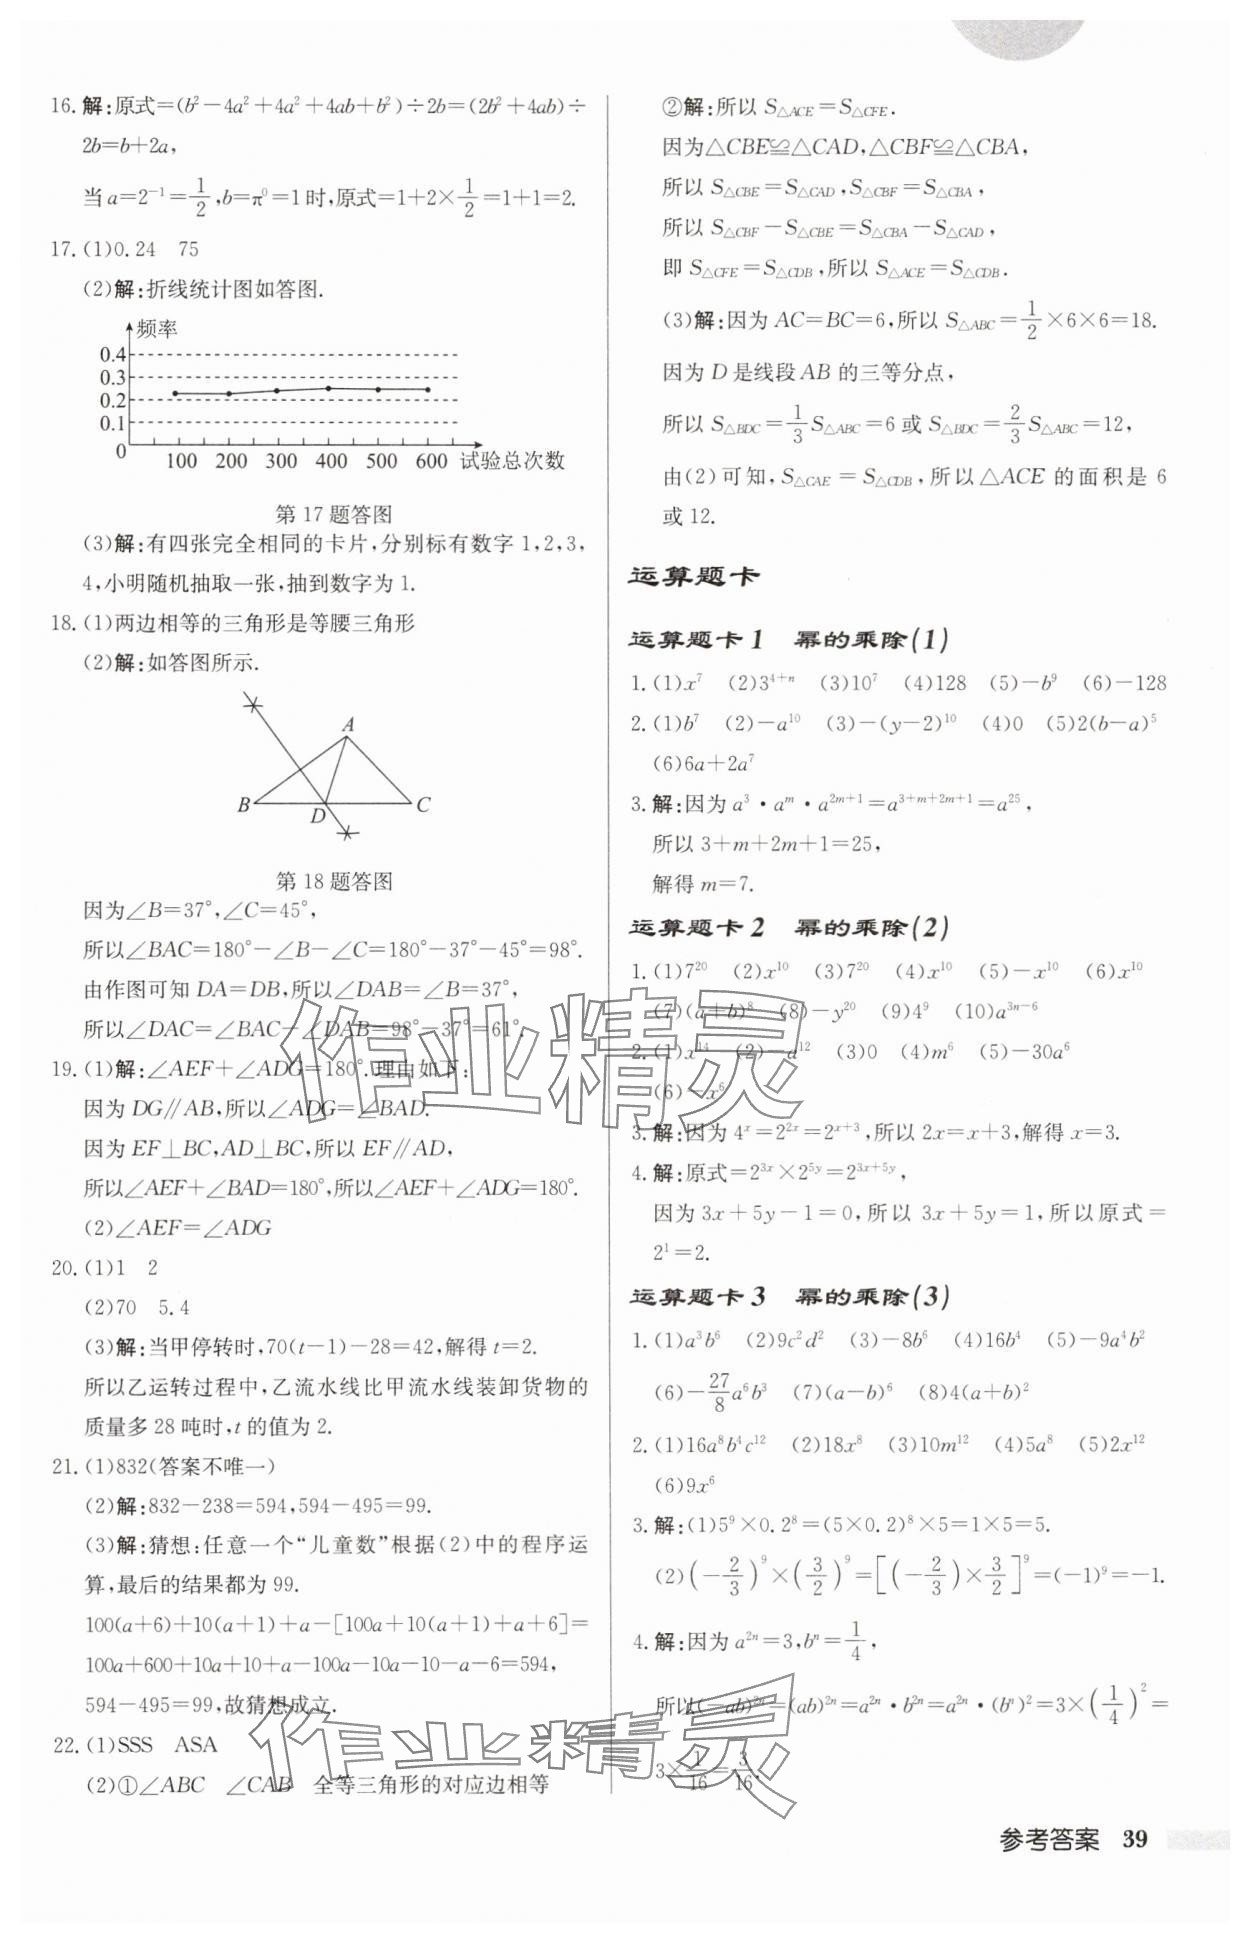 16. 解:原式=(b²-4a²+4a²+4ab+b²)÷2b=(2b²+4ab)÷
2b=b+2a,
当a=2⁻¹=1/2,b=π⁰=1时,原式=1+2×1/2=1+1=2.
17. (1)0.24 75
(2)解:折线统计图如答图.
频率
0.4
0.3
0.2
0.1
0
100 200 300 400 500 600 试验总次数
第17题答图
(3)解:有四张完全相同的卡片,分别标有数字1,2,3,
4,小明随机抽取一张,抽到数字为1.
18. (1)两边相等的三角形是等腰三角形
(2)解:如答图所示.
A
B D C
第18题答图
因为∠B=37°,∠C=45°,
所以∠BAC=180°-∠B-∠C=180°-37°-45°=98°.
由作图可知DA=DB,所以∠DAB=∠B=37°,
所以∠DAC=∠BAC-∠DAB=98°-37°=61°.
19. (1)解:∠AEF+∠ADG=180°.理由如下:
因为DG∥AB,所以∠ADG=∠BAD.
因为EF⊥BC,AD⊥BC,所以EF∥AD,
所以∠AEF+∠BAD=180°,所以∠AEF+∠ADG=180°.
(2)∠AEF=∠ADG
20. (1)1 2
(2)70 5.4
(3)解:当甲停转时,70(t-1)-28=42,解得t=2.
所以乙运转过程中,乙流水线比甲流水线装卸货物的
质量多28吨时,t的值为2.
21. (1)832(答案不唯一)
(2)解:832-238=594,594-495=99.
(3)解:猜想:任意一个“儿童数”根据(2)中的程序运
算,最后的结果都为99.
100(a+6)+10(a+1)+a-[100a+10(a+1)+a+6]=
100a+600+10a+10+a-100a-10a-10-a-6=594,
594-495=99,故猜想成立.
22. (1)SSS ASA
(2)①∠ABC ∠CAB 全等三角形的对应边相等
②解:所以S△ACE=S△CFE.
因为△CBE≌△CAD,△CBF≌△CBA,
所以S△CBE=S△CAD,S△CBF=S△CBA,
所以S△CBF-S△CBE=S△CBA-S△CAD,
即S△CFE=S△CDB,所以S△ACE=S△CDB.
(3)解:因为AC=BC=6,所以S△ABC=1/2×6×6=18.
因为D是线段AB的三等分点,
所以S△BDC=1/3S△ABC=6或S△BDC=2/3S△ABC=12,
由(2)可知,S△CAE=S△CDB,所以△ACE的面积是6
或12.
运算题卡
运算题卡1 幂的乘除(1)
1. (1)x⁷ (2)3⁴⁺ⁿ (3)10⁷ (4)128 (5)-b⁹ (6)-128
2. (1)b⁷ (2)-a¹⁰ (3)-(y-2)¹⁰ (4)0 (5)2(b-a)⁵
(6)6a+2a⁷
3. 解:因为a³·aᵐ·a²ᵐ⁺¹=a³⁺ᵐ⁺²ᵐ⁺¹=a²⁵,
所以3+m+2m+1=25,
解得m=7.
运算题卡2 幂的乘除(2)
1. (1)7²⁰ (2)x¹⁰ (3)7²⁰ (4)x¹⁰ (5)-x¹⁰ (6)x¹⁰
(7)(a+b)⁸ (8)-y²⁰ (9)4⁹ (10)a³ⁿ⁻⁶
2. (1)x¹⁴ (2)-a¹² (3)0 (4)m⁶ (5)-30a⁶
(6)-x⁶
3. 解:因为4ˣ=2²ˣ=2ˣ⁺³,所以2x=x+3,解得x=3.
4. 解:原式=2³ˣ×2⁵ʸ=2³ˣ⁺⁵ʸ,
因为3x+5y-1=0,所以3x+5y=1,所以原式=
2¹=2.
运算题卡3 幂的乘除(3)
1. (1)a³b⁶ (2)9c²d² (3)-8b⁶ (4)16b⁴ (5)-9a⁴b²
(6)-27/8a⁶b³ (7)(a-b)⁶ (8)4(a+b)²
2. (1)16a⁸b⁴c¹² (2)18x⁸ (3)10m¹² (4)5a⁸ (5)2x¹²
(6)9x⁶
3. 解:(1)5⁹×0.2⁸=(5×0.2)⁸×5=1×5=5.
(2)(-2/3)⁹×(3/2)⁹=[(-2/3)×3/2]⁹=(-1)⁹=-1.
4. 解:因为a²ⁿ=3,bⁿ=1/4,
所以(-ab)²ⁿ=(ab)²ⁿ=a²ⁿ·b²ⁿ=a²ⁿ·(bⁿ)²=3×(1/4)²=
3×1/16=3/16.
作业精灵
作业精灵
参考答案 39